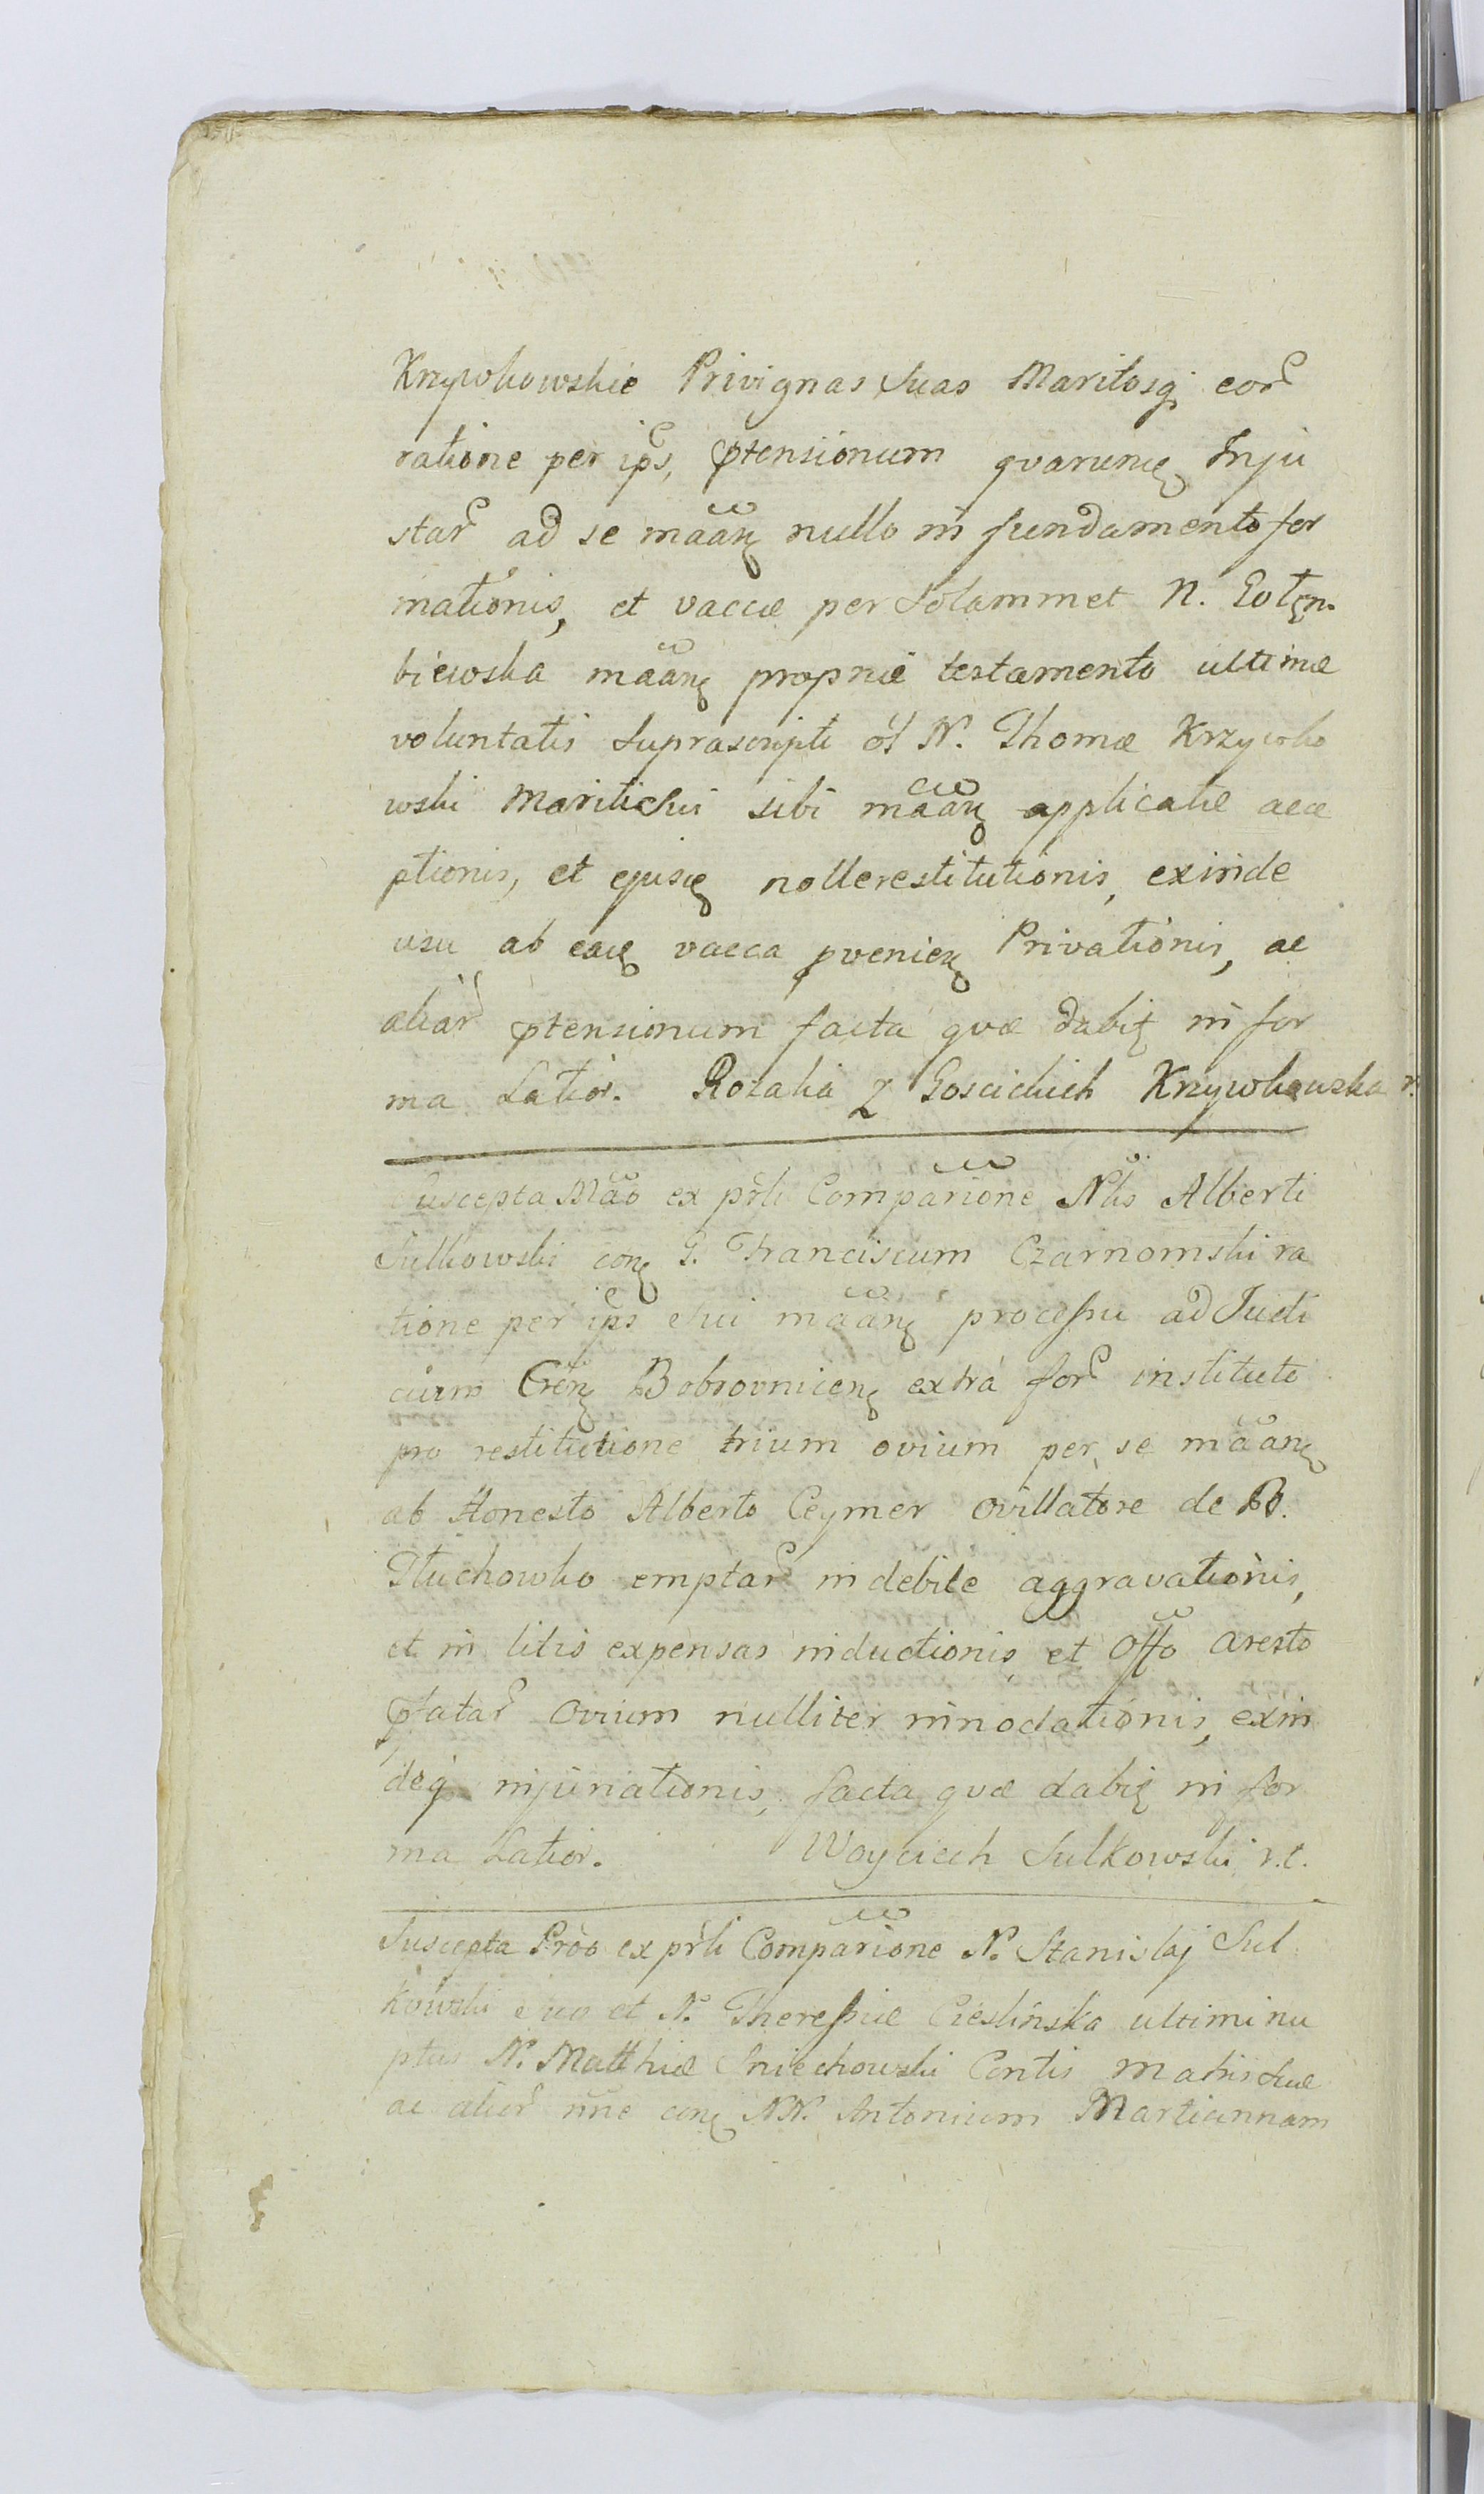 Krzywkowskie Privignas Suas Maritosq eor
ratione per ips, ptensionum qvarunq Inju
star ad se māāņ nullo in fundamento for
mationis, et vaccæ per Solammet N. Gołęm
biewska māāņ propriæ testamento ultimæ
voluntatis Suprascripti ol N. Thomæ Krzywko
wski Mariti Sui sibi māāņ applicatæ acce
ptionis, et ejusq nollerestitutionis, exinde
usu ab eaq vacca pvenieņ Privationis, ac
aliar ptensionum facta qvæ dabit in for
ma Latior. Rozalia Z Goscickich Krzywkowska
Suscepta Mão ex prli Comparione Nlis Alberti
Sulkowski conę G. Franciscum Czarnomski ra
tione per ips Sui māāņ processu ad Judi
cium Crěn Bobrovniceņ extrá for instituti
pro restitutione trium ovium per se māāņ
ab Honesto Alberto Ceymer ovillatore de B.
Tłuchowko emptar indebite aggravationis,
et in litis expensas inductionis et Offo aresto
pfatar Ovium nulliter innodationis, exin
deq injuriationis, facta qvæ dabit in for
ma Latior. Woyciech Sulkowski r. t.
Suscepta Prõo ex prli Comparione N. Stanislaj Sul
kowski Suo et N. Theressiæ Cieslinska ultimi nu
ptus N. Matthiæ Sniechowski Contis Matris Suæ
ac alior nne conę NN. Antonium Mariannam